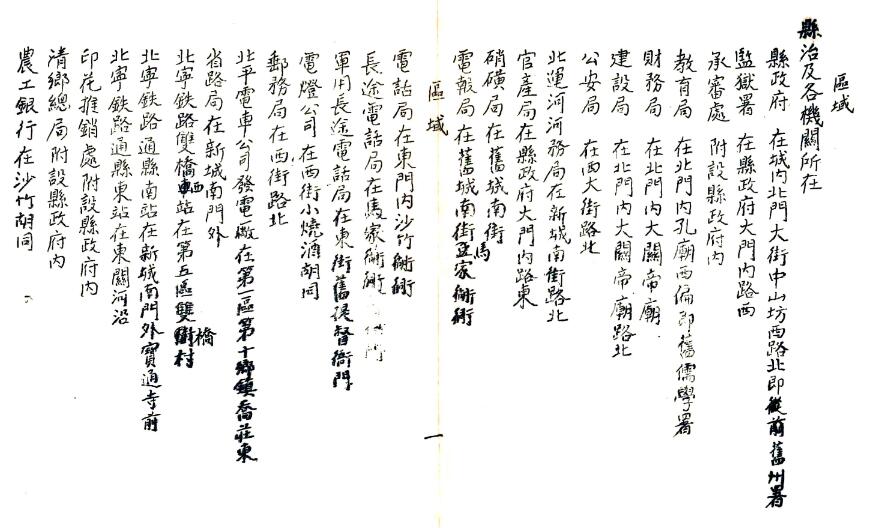 區域
縣治及各機關所在
縣政府 在城內北門大街中山坊西路北即從前舊州署
監獄署 在縣政府大門內路西
承審處 附設縣政府內
教育局 在北門內孔廟西偏即舊儒學署
財務局 在北門內大關帝廟
建設局 在北門內大關帝廟路北
公安局 在西大街路北
北運河河務局在新城南街路北
官產局在縣政府大門內路東
硝磺局在舊城南街
電報局在舊城南街馬家衚衕
區域
一
電話局在東門內沙竹衚衕
長途電話局在馬家衚衕
軍用長途電話局在東街舊提督衙門
電燈公司在西街小燒酒胡同
郵務局在西街路北
北平電車公司發電廠在第一區第十鄉鎮喬莊東
省路局在新城南門外
北寧鉄路雙橋車站在第五區雙橋村
北寧鉄路通縣南站在新城南門外寶通寺前
北寧鉄路通縣東站在東關河沿
印花推銷處附設縣政府內
清鄉總局附設縣政府內
農工銀行在沙竹胡同